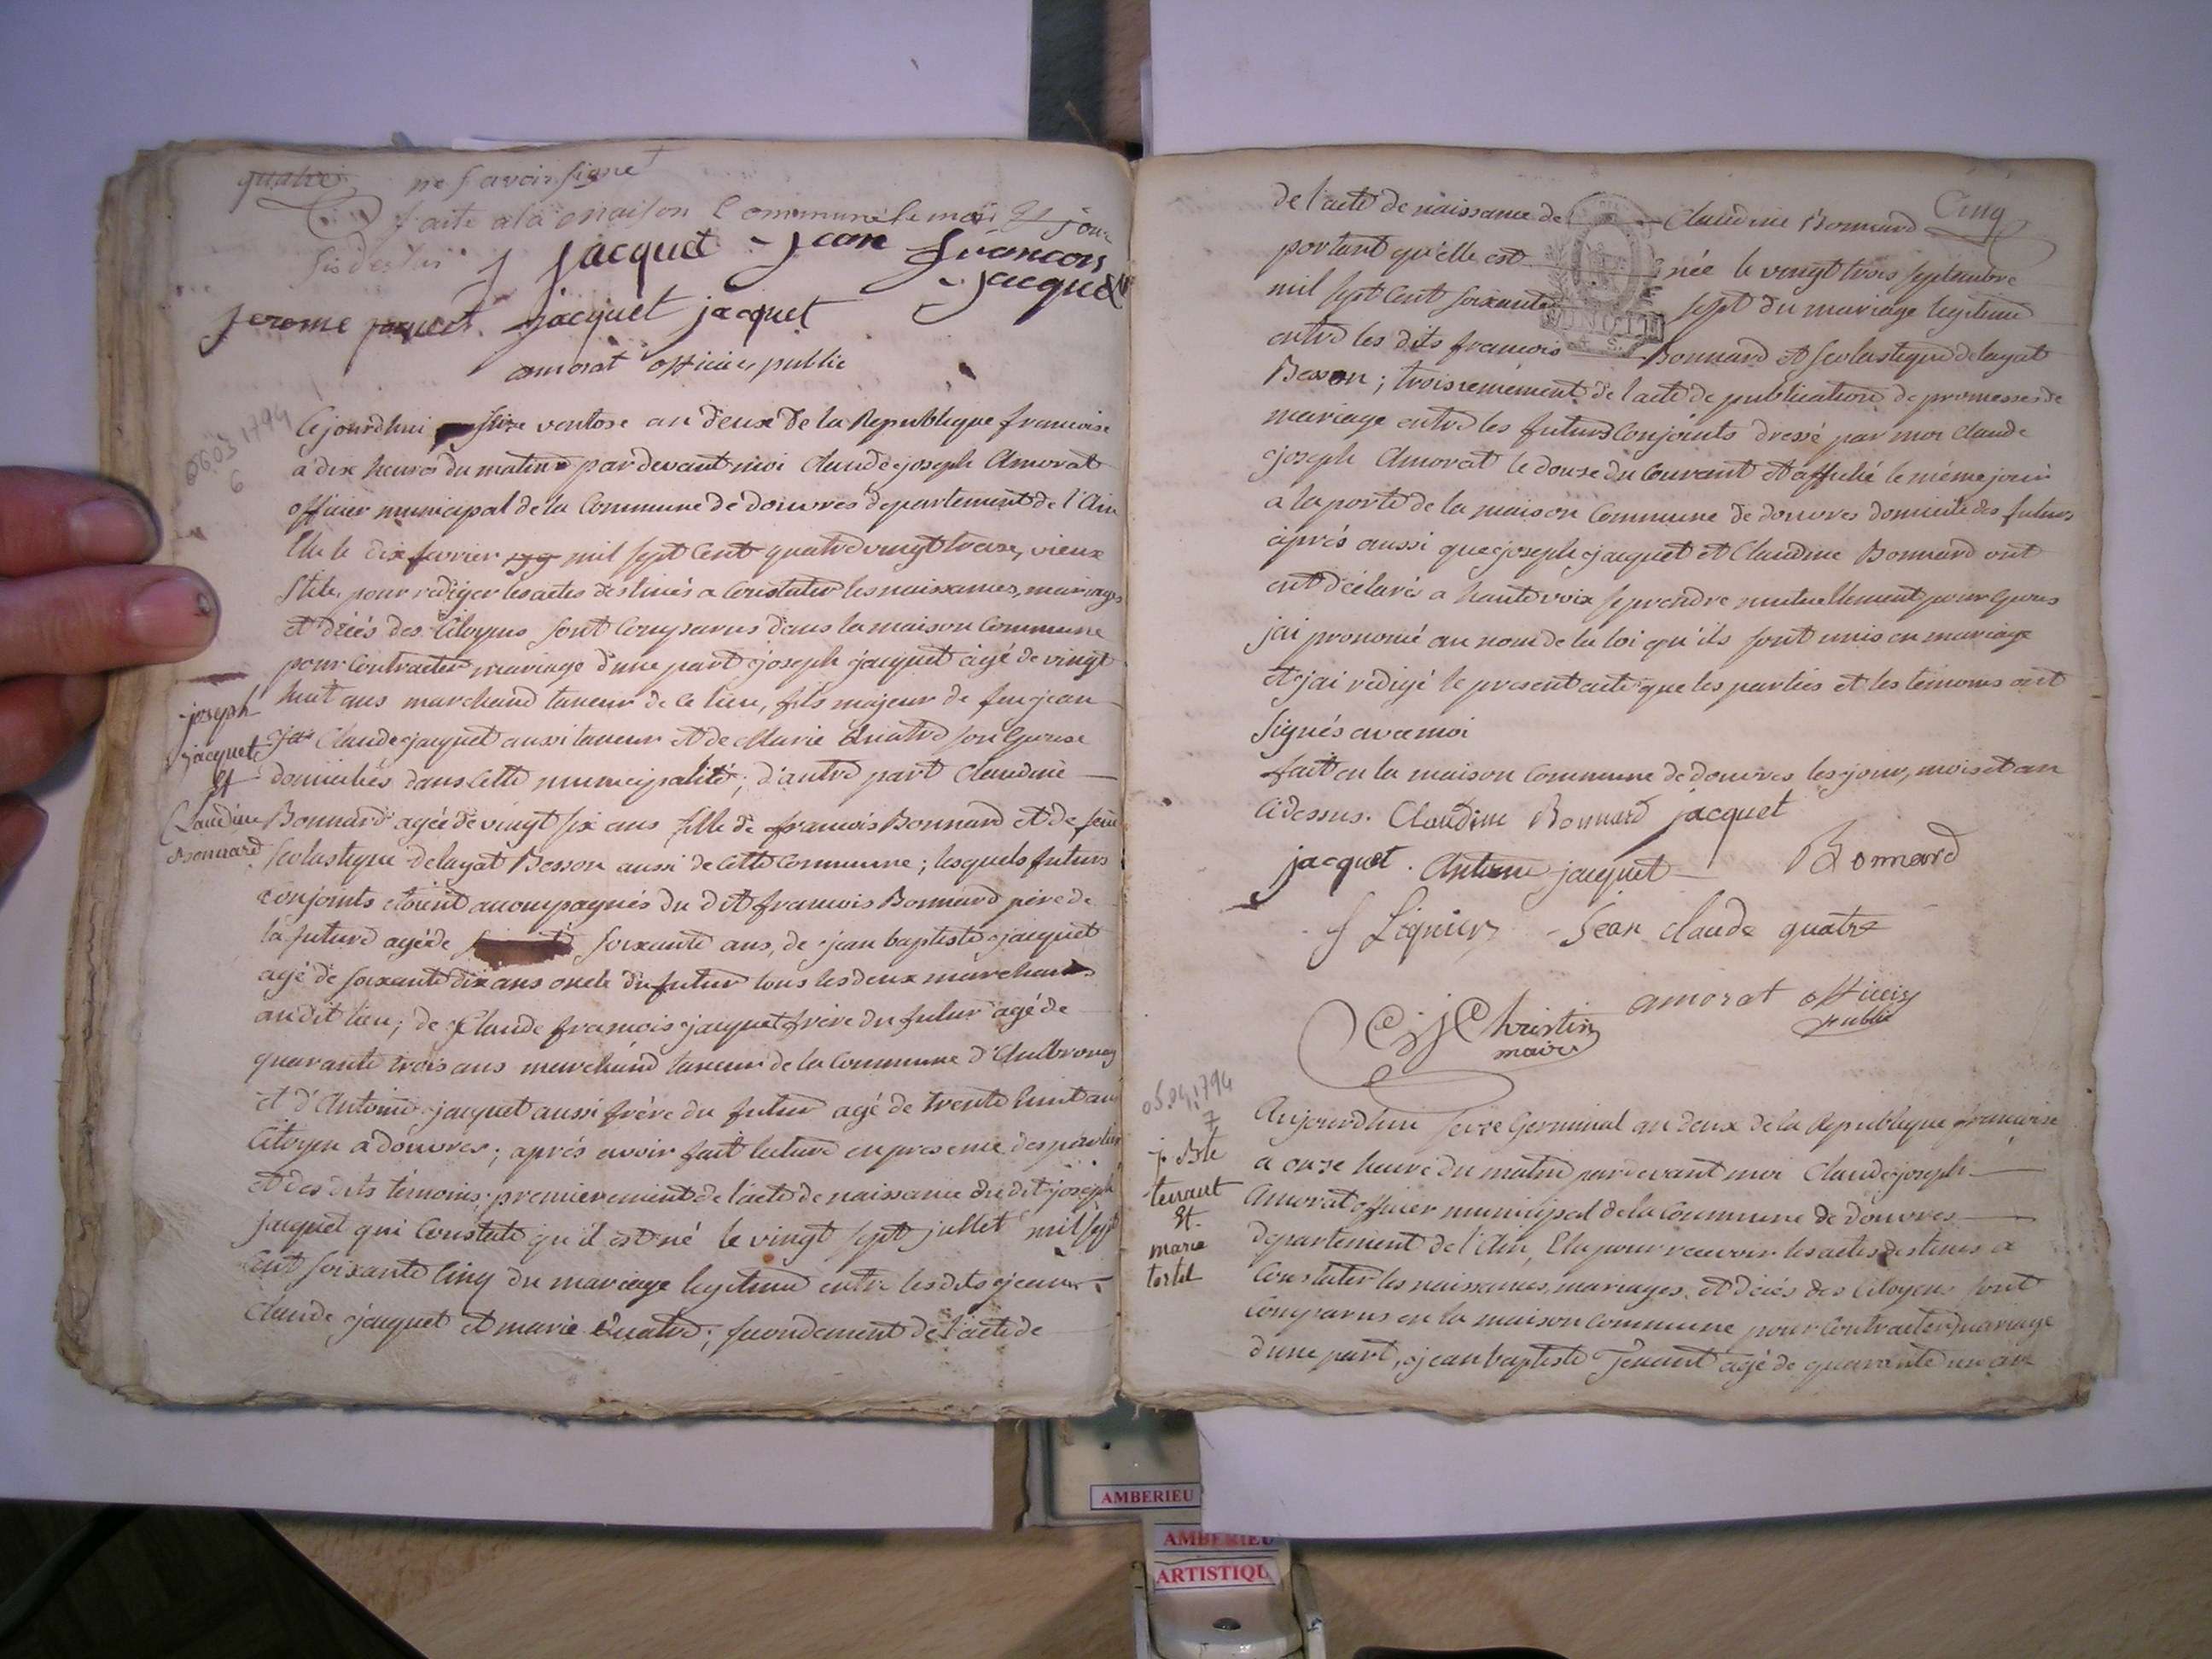 quatre
ne savoir signé
faite a la maison Commune le mois et jour
sis deslus J jacquet jean francois
jacquet
jerome jaquet. jacquet jacquet
amorat officier public
06.03.1794
6
Cejourdhui seize ventose an deux de la Republique francoise
a dix heures du matin pardevant moi Claude joseph Amorat
officier municipal de la Commune de douvres departement de l'Ain
Elu le dix fevrier mil sept Cent quatre vingt treize, vieux
Stile, pour rediger les actes destinés a Constater les naissances, mariages
et décés des Citoyens sont Comparus dans la maison Commune
pour Contracter mariage d'une part joseph jacquet agé de vingt
huit ans marchand taneur de ce lieu, fils majeur de feu jean
Claude jacquet aussi taneur et de Marie Quatre son Epouse
domiciliés dans Cette municipalité; d'autre part Claudine
Bonnard agée de vingt six ans fille de francois Bonnard et de feue
Scolastique delagat Besson aussi de Cette Commune; lesquels futurs
conjoints etoient accompagnés du dit francois Bonnard pere de
la future agé de soixante ans, de jean baptiste jacquet
agé de soixante dix ans oncle du futur tous les deux marchands
au dit lieu; de Claude francois jacquet frere du futur agé de
quarante trois ans marchand taneur de la Commune d'Ambronay
et d'Antoine jacquet aussi frère du futur agé de trente huit ans
Citoyen a douvres; aprés avoir fait lecture en presence des parties
et des dits témoins; premierement de l'acte de naissance du dit joseph
jacquet qui Constate qu'il est né le vingt sept jullet mil sept
Cent soixante Cinq du mariage legitime entre les dits jean
Claude jacquet et marie Quatre; secondement de l'acte de
joseph
jacquet
et
Claudine
Bonnard
Cinq
de l'acte de naissance de Claudine Bonnard
portant qu'elle est née le vingt trois septembre
mil sept Cent soixante sept du mariage legitime
entre les dits francois Bonnard et Scolastique delagat
Besson; troisiemement de l'acte de publication de promesses de
mariage entre les futurs Conjoints dressé par moi Claude
joseph Amorat le douse du Courant et affiché le même jour
a la porte de la maison Commune de douvres domicile des futurs
aprés aussi que joseph jacquet et Claudine Bonnard ont
ont déclaré a haute voix se prendre mutuellement pour Epoux
j'ai prononcé au nom de la loi qu'ils sont unis en mariage
et j'ai redigé le present acte que les parties et les témoins ont
signés avec moi
fait en la maison Commune de douvres les jour, mois et an
Cidessus. Claudine Bonnard jacquet
jacquet. Antoine jacquet Bonnard
J Lognier Jean claude quatre
amorat officier
public
Christin
maire
05.04.1794
7
j. Bte
tenant
et
marie
tortel
Aujourdhui seize Germinal an deux de la Republique francoise
a onze heure du matin pardevant moi Claude joseph
Amorat officier municipal de la Commune de douvres
departement de l'Ain, Elu pour recevoir les actes destinés a
Constater les naissances, mariages, et décés des Citoyens sont
Comparus en la maison Commune pour Contracter mariage
d'une part, jean baptiste Tenant agé de quarante un an
AMBERIEU
AMBERIEU
ARTISTIQU